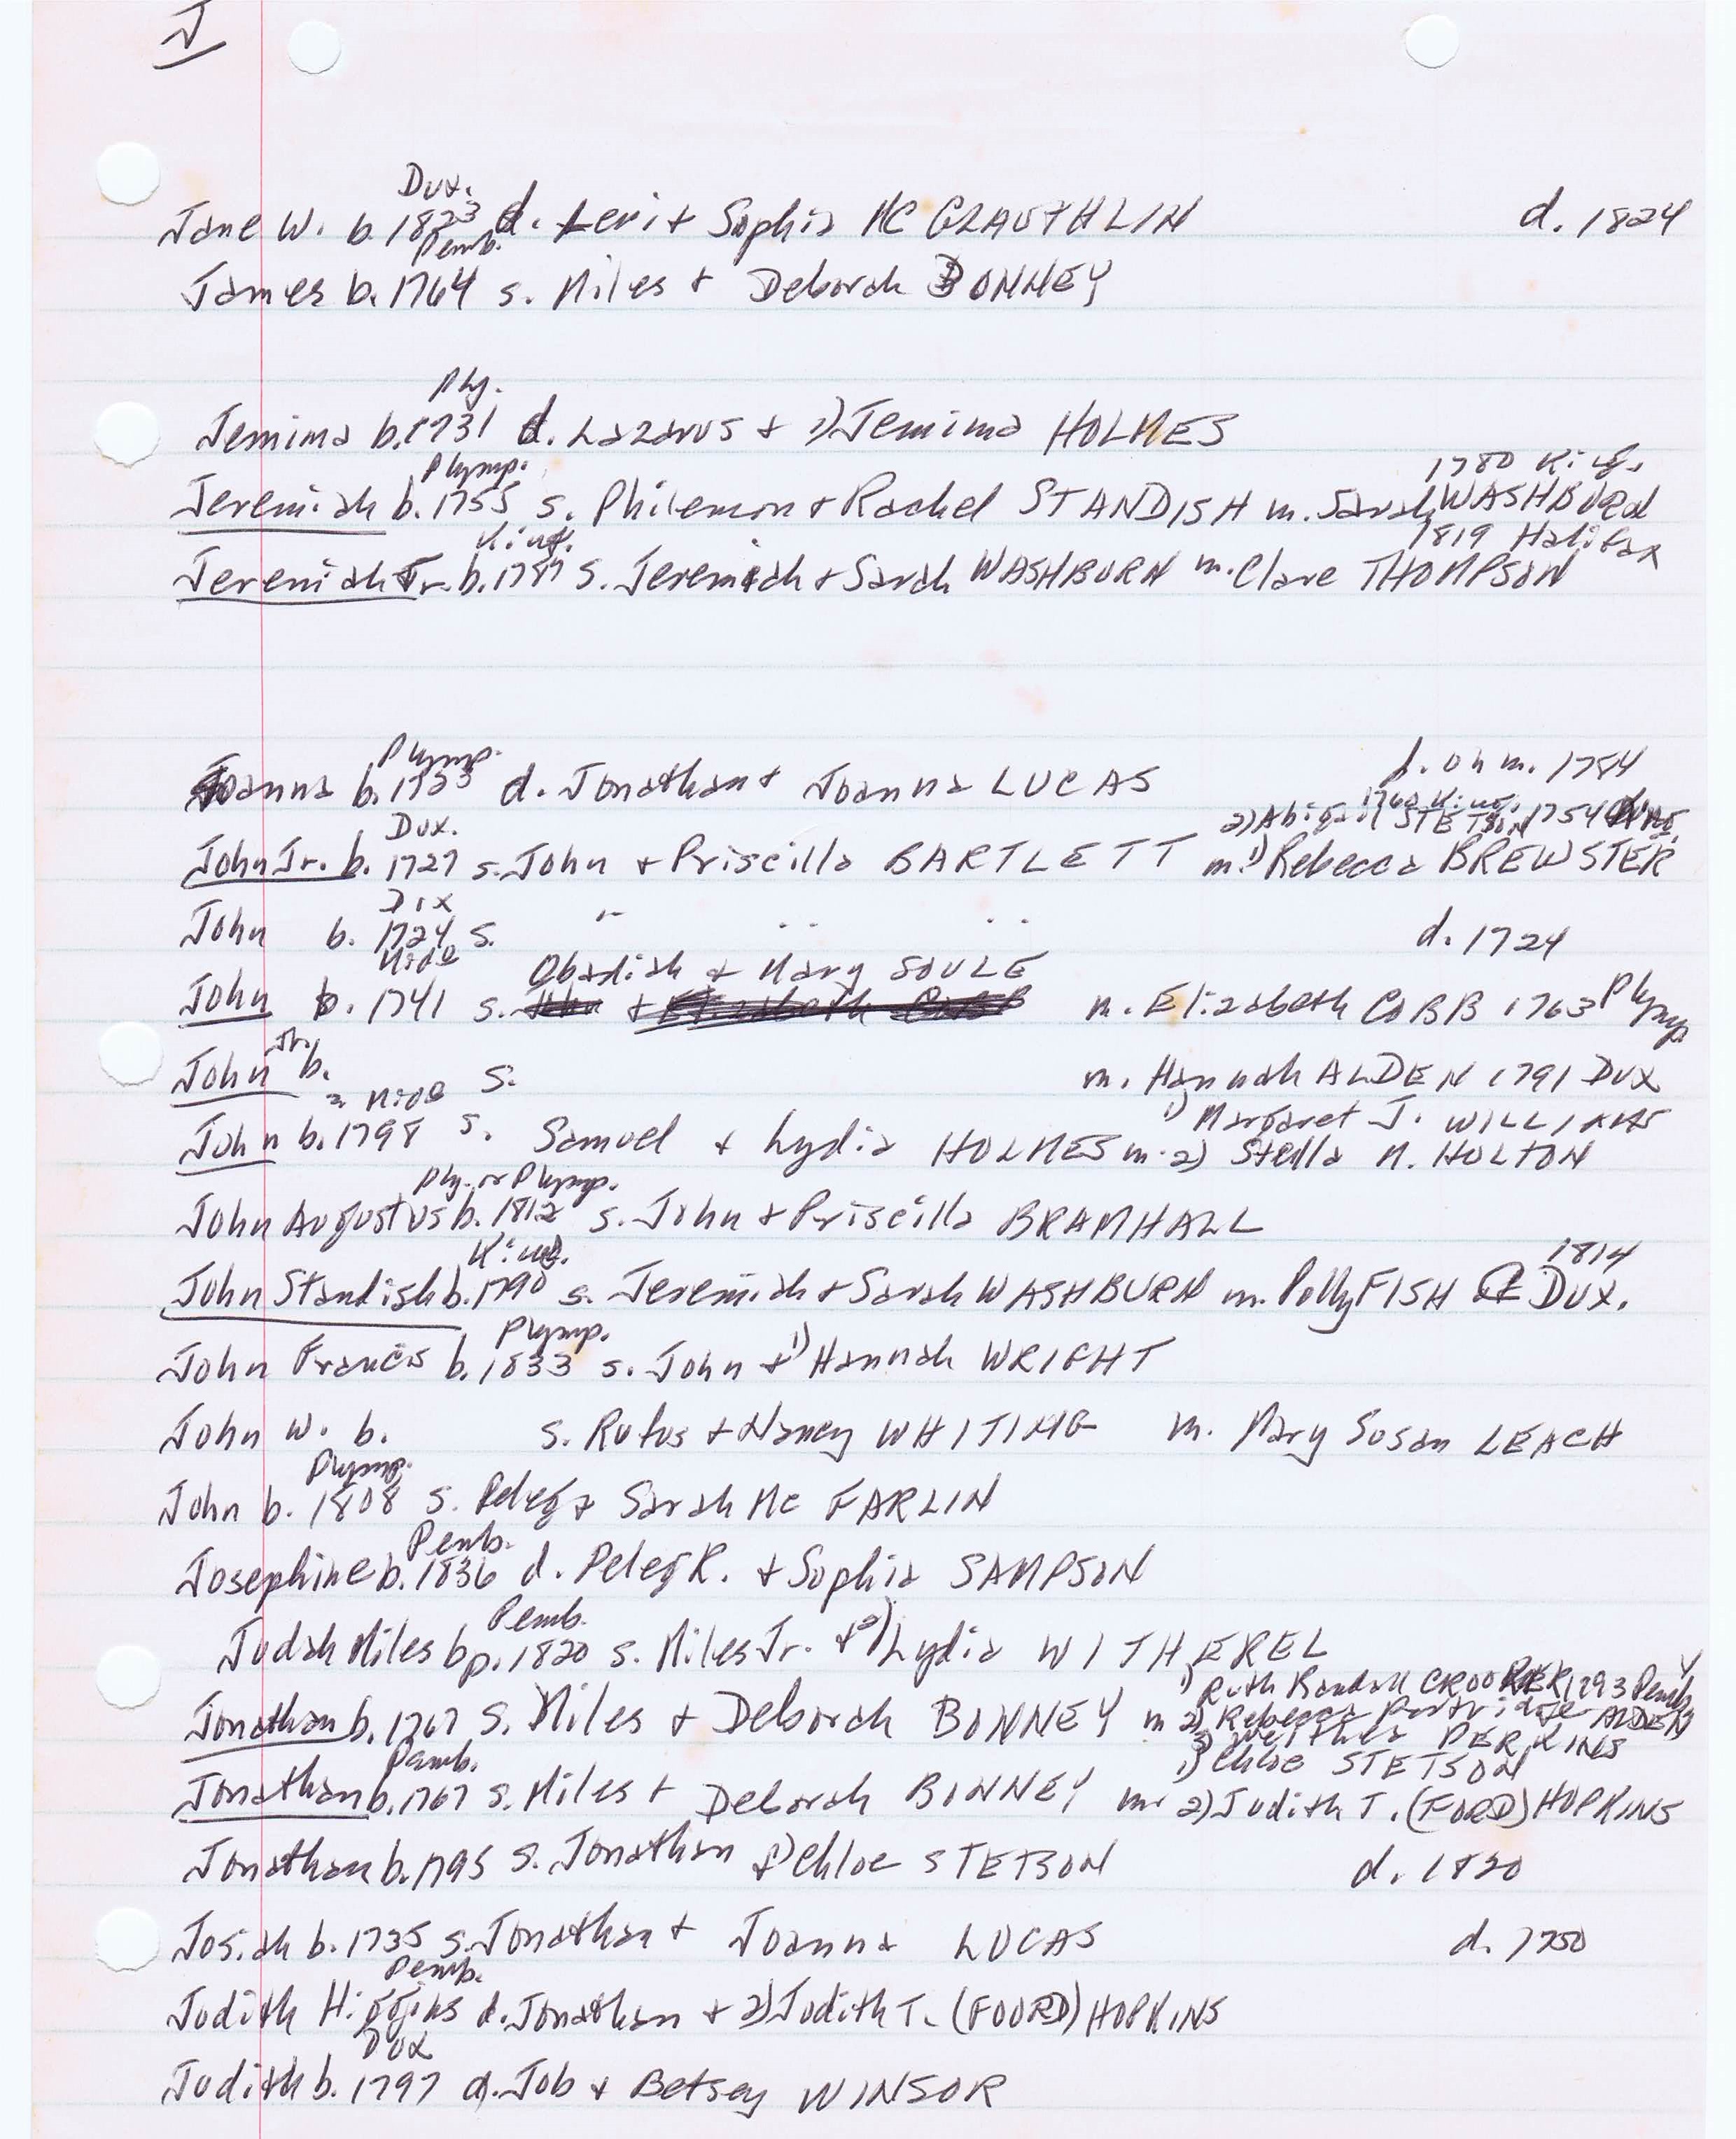 J
Dux.
Jane W. b. 1823 d. Levi + Sophia Mc GLAUTHLIN d. 1824
Pemb.
James b. 1764 s. Miles + Deborah BONNEY
Ply.
Jemima b. 1731 d. Lazarus + 1) Jemima HOLMES
Plymp. 1780 King.
Jeremiah b. 1755 s. Philemon + Rachel STANDISH m. Sarah WASHBURN
King. 1819 Halifax
Jeremiah Jr. b. 1787 s. Jeremiah + Sarah WASHBURN m. Clare THOMPSON
Plymp.
Joanna b. 1733 d. Jonathan + Joanna LUCAS d. unm. 1754
1760 King.
Dux. 2) Abigail STETSON 1754
John Jr. b. 1727 s. John + Priscilla BARTLETT m. 1) Rebecca BREWSTER
Dux
John b. 1724 s. " " " d. 1724
Midb Obadiah + Mary SOULE
John b. 1741 s. m. Elizabeth COBB 1763 Plymp.
John Jr. b. s. m. Hannah ALDEN 1791 DUX
Midb 1) Margaret J. WILLIAMS
John b. 1798 s. Samuel + Lydia HOLMES m. 2) Stella M. HOLTON
Ply. or Plymp.
John Augustus b. 1812 s. John + Priscilla BRAMHALL
King. 1814
John Standish b. 1790 s. Jeremiah + Sarah WASHBURN m. Polly FISH DUX.
Plymp.
John Francis b. 1833 s. John + 1) Hannah WRIGHT
John W. b. s. Rufus + Nancy WHITING m. Mary Susan LEACH
Plymp.
John b. 1808 s. Peleg + Sarah Mc FARLIN
Pemb.
Josephine b. 1836 d. Peleg R. + Sophia SAMPSON
Pemb.
Judah Miles bp. 1820 s. Miles Jr. + 2) Lydia WITHEREL
1) Ruth Randall CROOKER 1793 Pemb.
Jonathan b. 1767 s. Miles + Deborah BONNEY m 2) Rebecca Partridge ALDEN
3) PERKINS
Pemb. 1) Chloe STETSON
Jonathan b. 1767 s. Miles + Deborah BONNEY m. 2) Judith T. (FORD) HOPKINS
Jonathan b. 1795 s. Jonathan + 1) Chloe STETSON d. 1820
Josiah b. 1735 s. Jonathan + Joanna LUCAS d. 1750
Pemb.
Judith Higgins d. Jonathan + 2) Judith T. (FOORD) HOPKINS
Dux
Judith b. 1797 d. Job + Betsey WINSOR